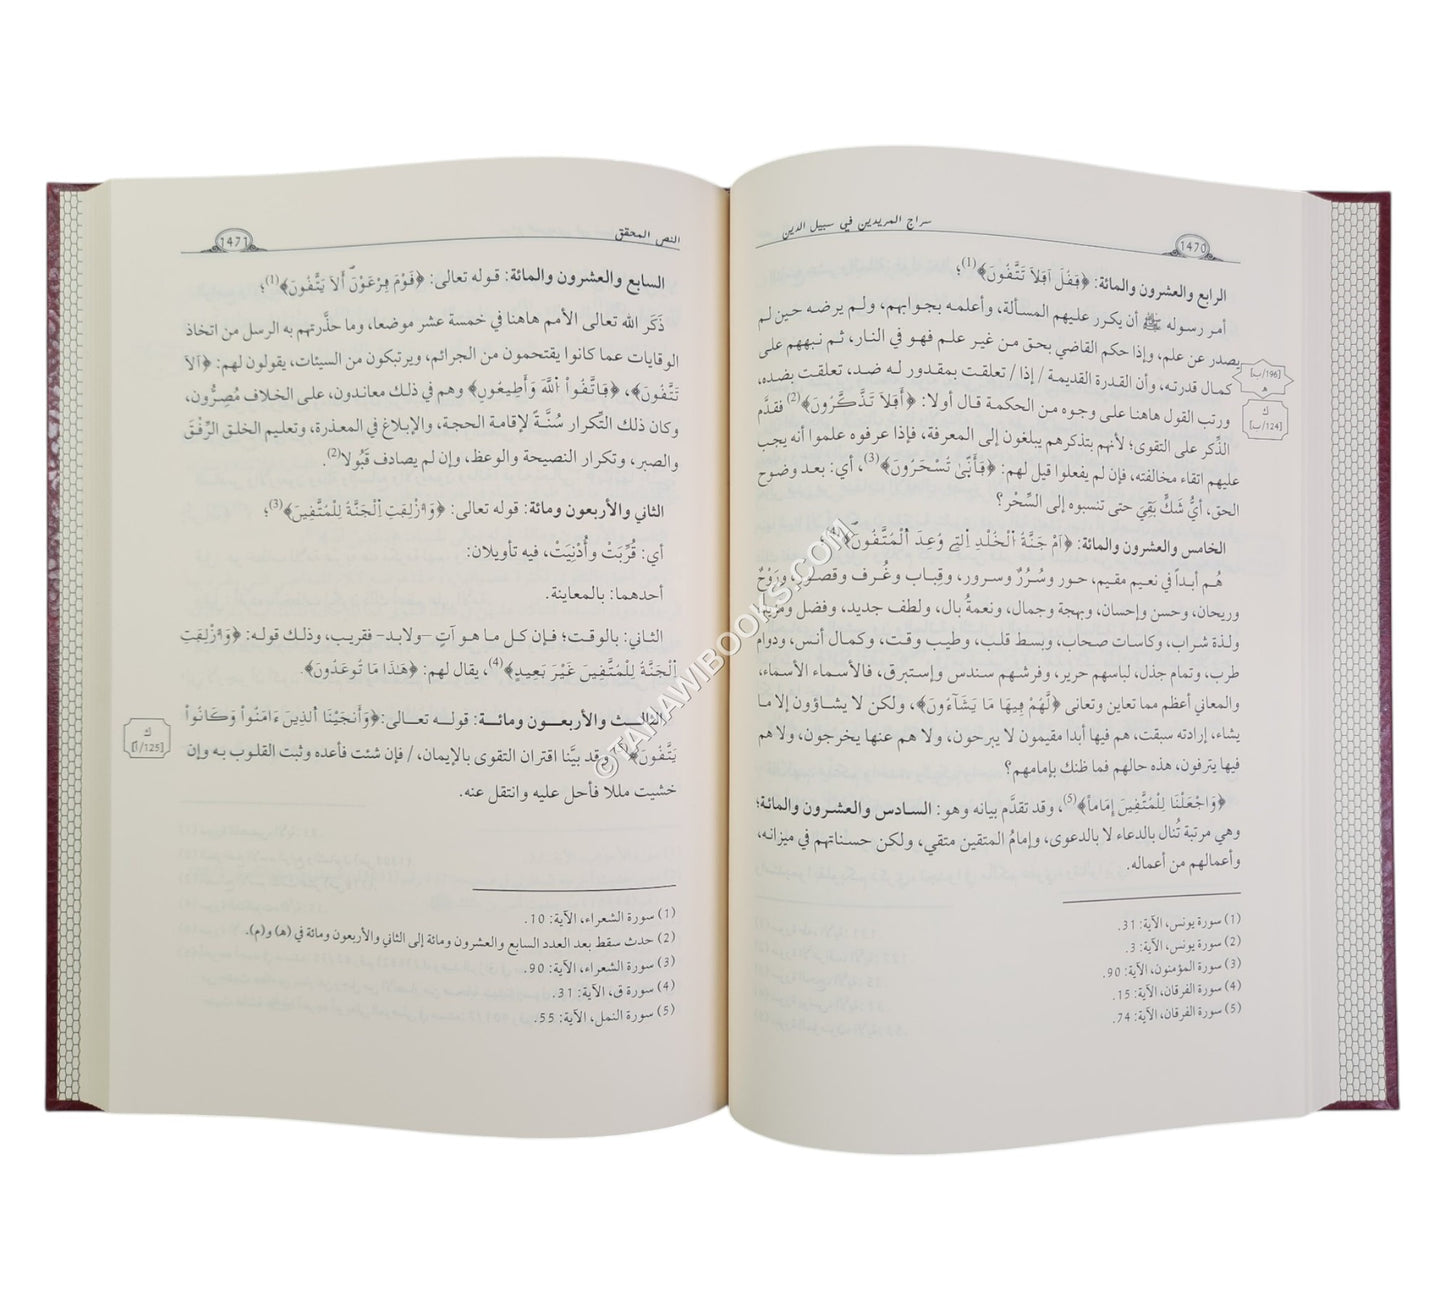 سراج المريدين في سبيل الدين
1470
الرابع والعشرون والمائة: ﴿فَقُلَ اَفَلاَ تَتَّقُونَ﴾(1)؛
أمر رسوله ﷺ أن يكرر عليهم المسألة، وأعلمه بجوابهم، ولم يرضه حين لم
يصدر عن علم، وإذا حكم القاضي بحق من غير علم فهو في النار، ثم نبههم على
كمال قدرته، وأن القدرة القديمة / إذا / تعلقت بمقدور له ضد، تعلقت بضده،
ورتب القول هاهنا على وجوه من الحكمة قال أولا: ﴿أَفَلاَ تَذَّكَّرُونَ﴾(2) فقدَّم
الذِّكر على التقوى؛ لأنهم بتذكرهم يبلغون إلى المعرفة، فإذا عرفوه علموا أنه يجب
عليهم اتقاء مخالفته، فإن لم يفعلوا قيل لهم: ﴿فَأَنّىٰ تُسْحَرُونَ﴾(3)، أي: بعد وضوح
الحق، أيُّ شَكٍّ بَقِيَ حتى تنسبوه إلى السِّحْر؟
[196/ب]
هـ
ك
[124/ب]
الخامس والعشرون والمائة: ﴿اَمْ جَنَّةُ اُ۬لْخُلْدِ اِ۬لتِے وُعِدَ اَ۬لْمُتَّقُونَ﴾(4)
هُم أبداً في نعيم مقيم، حور وسُرُرٌ وسرور، وقِباب وغُرف وقصور، ورَوْحٌ
وريحان، وحسن وإحسان، وبهجة وجمال، ونعمةُ بال، ولطف جديد، وفضل ومزيد،
ولذة شراب، وكاسات صحاب، وبسط قلب، وطيب وقت، وكمال أنس، ودوام
طرب، وتمام جذل، لباسهم حرير، وفرشهم سندس وإستبرق، فالأسماء الأسماء،
والمعاني أعظم مما تعاين وتعانى ﴿لَّهُمْ فِيهَا مَا يَشَآءُونَ﴾، ولكن لا يشاؤون إلا ما
يشاء، إرادته سبقت، هم فيها أبدا مقيمون لا يبرحون، ولا هم عنها يخرجون، ولا هم
فيها يترفون، هذه حالهم فما ظنك بإمامهم؟
﴿وَاجْعَلْنَا لِلْمُتَّقِينَ إِمَاماً﴾(5)، وقد تقدَّم بيانه وهو: السادس والعشرون والمائة؛
وهي مرتبة تُنال بالدعاء لا بالدعوى، وإمامُ المتقين متقي، ولكن حسناتهم في ميزانه،
وأعمالهم من أعماله.
(1) سورة يونس، الآية: 31.
(2) سورة يونس، الآية: 3.
(3) سورة المؤمنون، الآية: 90.
(4) سورة الفرقان، الآية: 15.
(5) سورة الفرقان، الآية: 74.
النص المحقق
1471
السابع والعشرون والمائة: قوله تعالى: ﴿قَوْمَ فِرْعَوْنَ أَلاَ يَتَّقُونَ﴾(1)؛
ذَكَر الله تعالى الأمم هاهنا في خمسة عشر موضعا، وما حذَّرتهم به الرسل من اتخاذ
الوقايات عما كانوا يقتحمون من الجرائم، ويرتبكون من السيئات، يقولون لهم: ﴿اَلاَ
تَتَّقُونَ﴾، ﴿فَاتَّقُوا۟ اُ۬للَّهَ وَأَطِيعُونِ﴾ وهم في ذلك معاندون، على الخلاف مُصِرُّون،
وكان ذلك التِّكرار سُنَّةً لإقامة الحجة، والإبلاغ في المعذرة، وتعليم الخلق الرِّفْقَ
والصبر، وتكرار النصيحة والوعظ، وإن لم يصادف قَبُولا(2).
الثاني والأربعون ومائة: قوله تعالى: ﴿وَأُزْلِفَتِ اِ۬لْجَنَّةُ لِلْمُتَّقِينَ﴾(3)؛
أي: قُرِّبَتْ وأُدْنِيَتْ، فيه تأويلان:
أحدهما: بالمعاينة.
الثاني: بالوقت؛ فإن كل ما هو آتٍ -ولابد- فقريب، وذلك قوله: ﴿وَأُزْلِفَتِ
اِ۬لْجَنَّةُ لِلْمُتَّقِينَ غَيْرَ بَعِيدٍ﴾(4)، يقال لهم: ﴿هَٰذَا مَا تُوعَدُونَ﴾.
الثالث والأربعون ومائة: قوله تعالى: ﴿وَأَنجَيْنَا اَ۬لذِينَ ءَامَنُوا۟ وَكَانُوا۟
يَتَّقُونَ﴾ وقد بيَّنا اقتران التقوى بالإيمان، / فإن شئت فأعده وثبت القلوب به وإن
خشيت مللا فأحل عليه وانتقل عنه.
ك
[125/أ]
(1) سورة الشعراء، الآية: 10.
(2) حدث سقط بعد العدد السابع والعشرون ومائة إلى الثاني والأربعون ومائة في (هـ) و(م).
(3) سورة الشعراء، الآية: 90.
(4) سورة ق، الآية: 31.
(5) سورة النمل، الآية: 55.
©TAHAWIBOOKS.COM